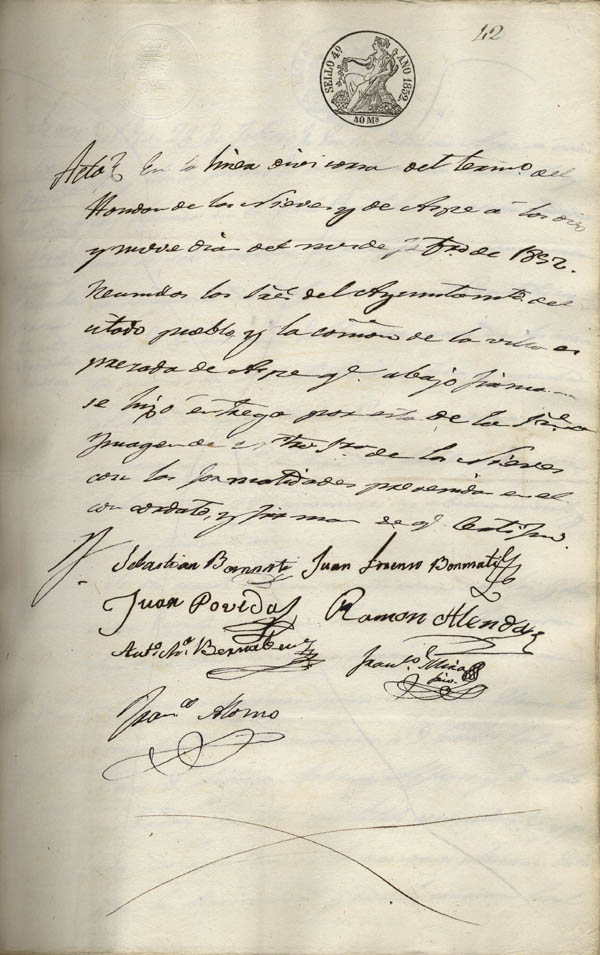 42
SELLO 4º AÑO 1852
40 Ms
Acto En la linea divisoria del termº. del
Hondon de las Nieves y de Aspe á los diez
y nueve dias del mes de de 1852.
Reunidos los Sres. del Ayuntamto. del
citado pueblo y la comon. de la villa es
presada de Aspe qe. abajo firman
se hizo entrega por esta de la
Ymagen de Sra. de las Nieves
con las formalidades prevenidas en el
concordato, y firman de qe. Certifico.
Sebastian Bonmati Juan Lorenzo Bonmati
Juan Poveda Ramon Alenda
Anto. Ma. Bernabeu Franco. Mira
Franco. Alonso